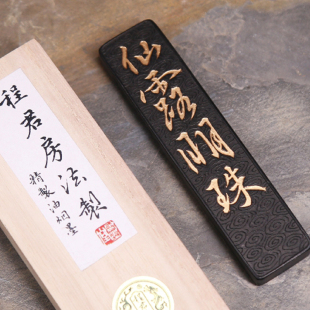 仙露明珠
程君房法製
精製油烟墨